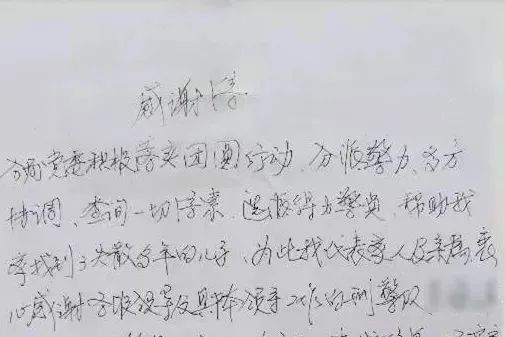 感谢信
分局党委积极落实团圆行动，分派警力、多方
协调、查询一切线索，选派得力警员，帮助我
寻找到了失散多年的儿子，为此我代表家人及亲属衷
心感谢各级领导及具体领导工作的刑警队